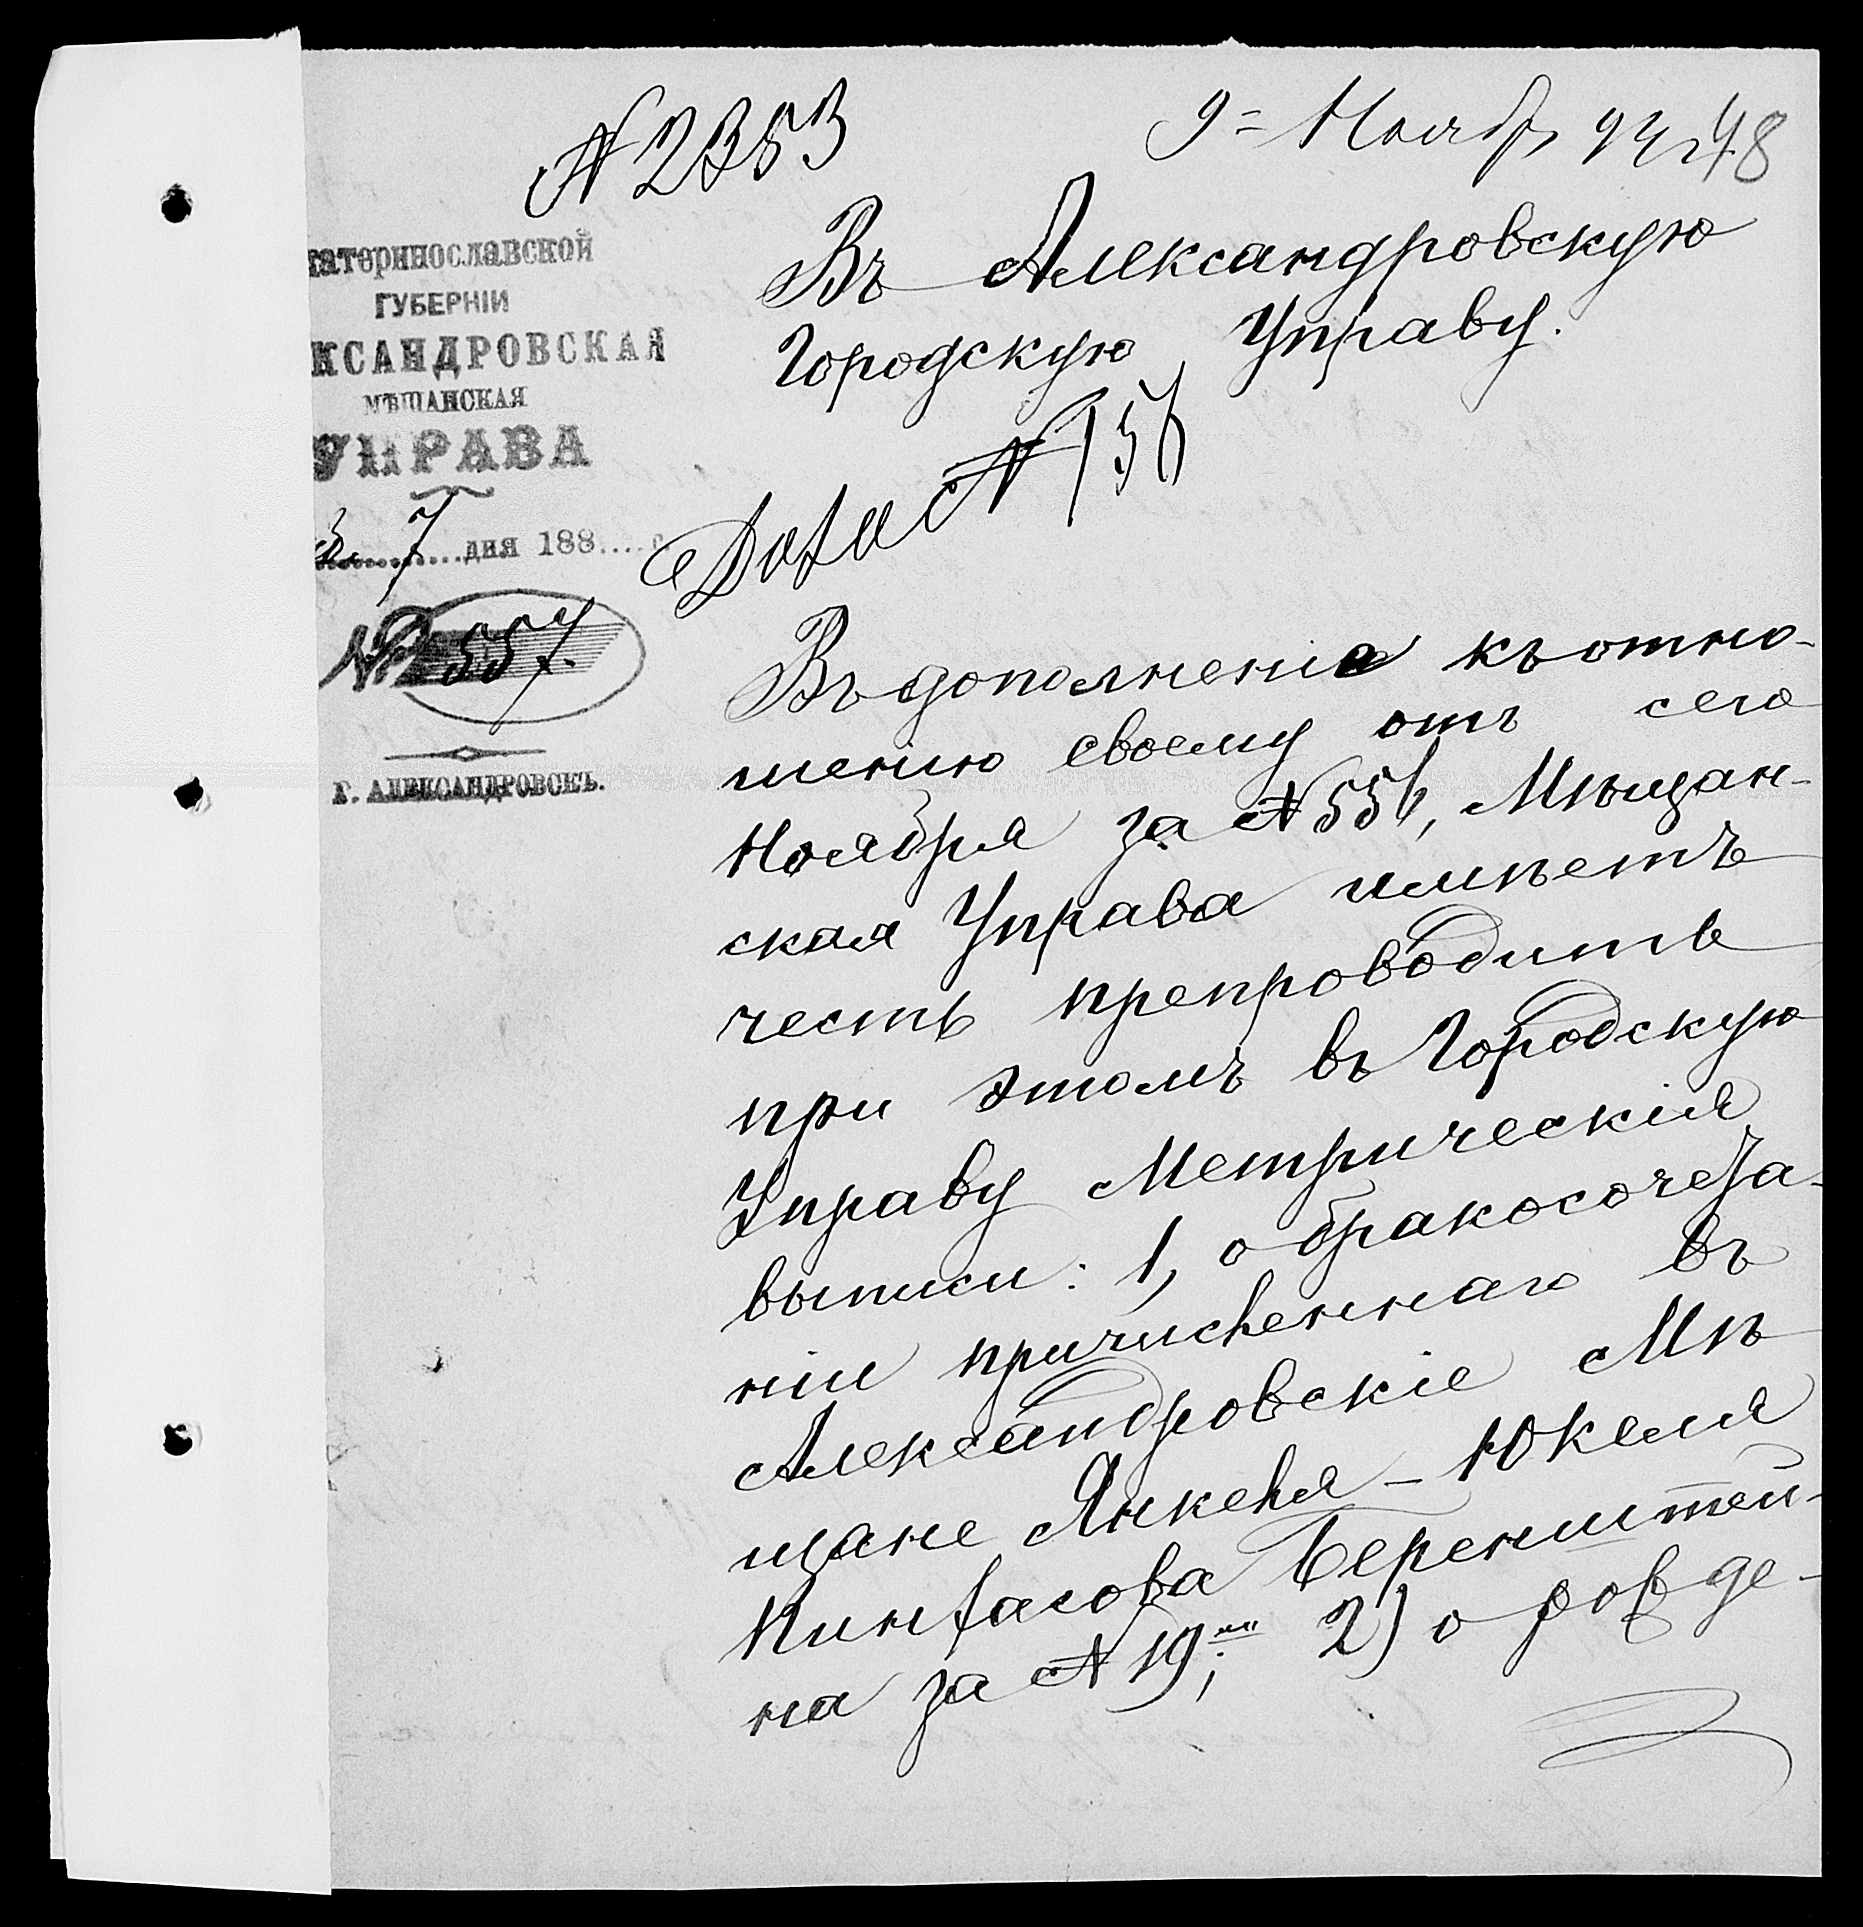 № 2353
9 = Ноябр 94 г
48
катеринославской
ГУБЕРНІИ
КСАНДРОВСКАЯ
МѢЩАНСКАЯ
УПРАВА
7 дня 188 г.
№ 557.
Г. АЛЕКСАНДРОВСКЪ.
Въ Александровскую
Городскую Управу.
Дѣло № 156
Въ дополненіе къ отно-
шенію своему отъ сего
Ноября за № 556, Мѣщан-
ская Управа имѣетъ
честь препроводить
при этомъ въ Городскую
Управу Метрическія
выписи: 1, о бракосочета-
ніи причисленнаго въ
Александровскіе Мѣ
щане Янкеля-Юкеля
Пинхасова Беренштей-
на за № 19; 2) о рожде-